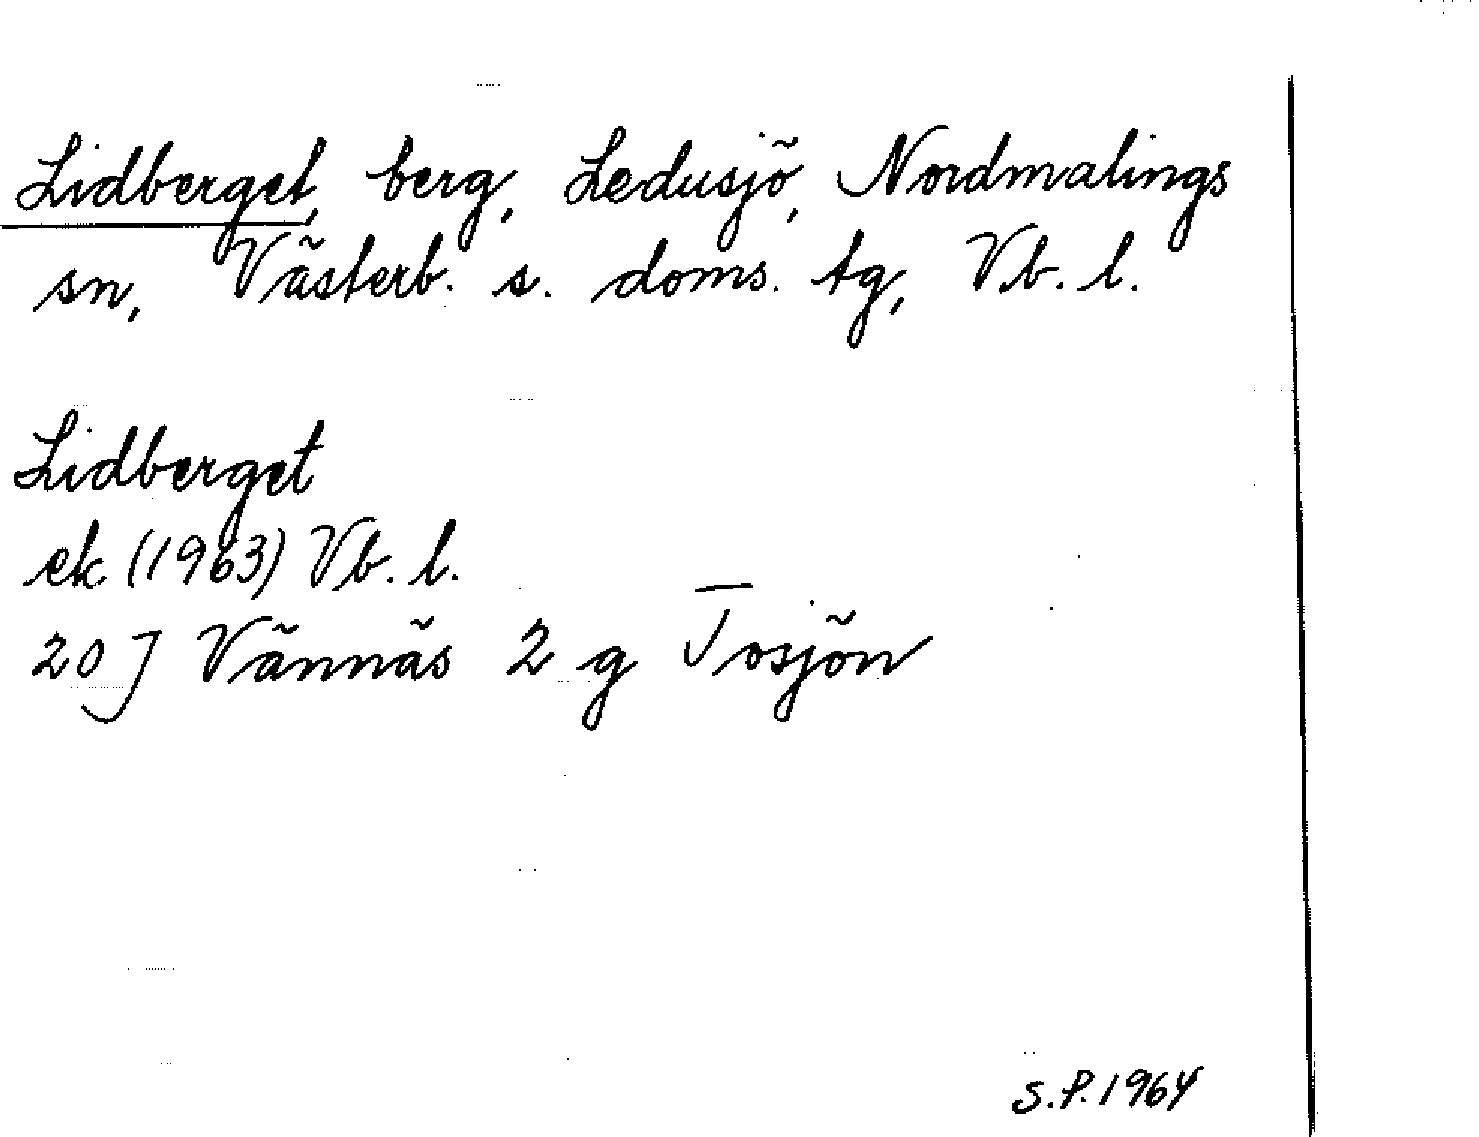 Lidberget, berg, Ledusjö, Nordmalings
sn, Västerb. s. doms. tg, Vb. l.
Lidberget
ek (1963) Vb. l.
20 J Vännäs 2 g Tosjön
S.P. 1964